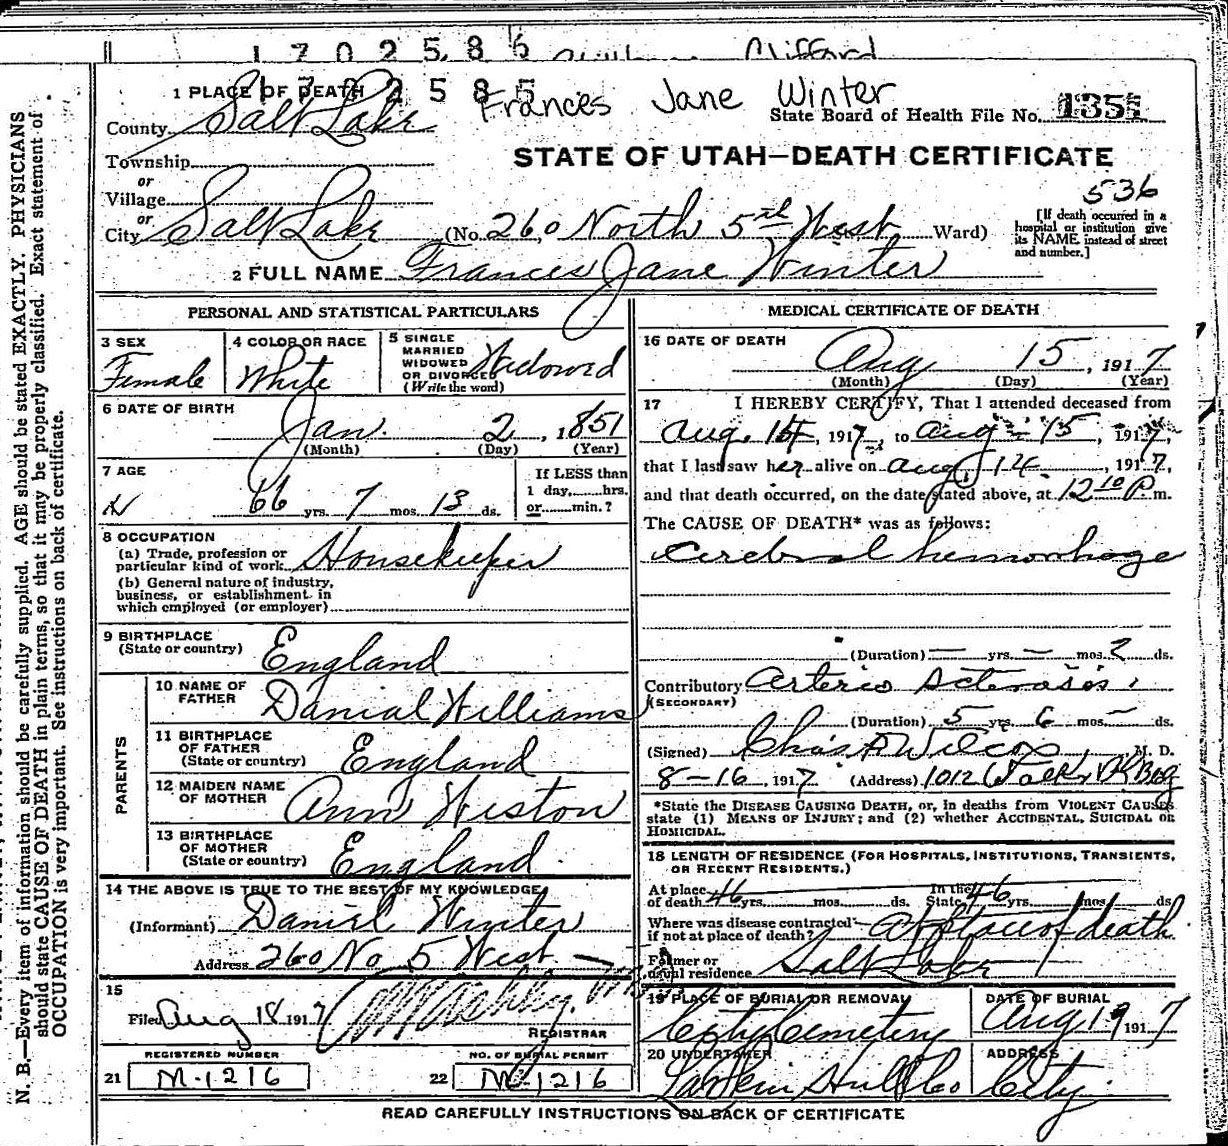 1 7 0 2 5 8 6 Clifford
1 7 0 2 5 8 5
Frances Jane Winter
1 PLACE OF DEATH
County Salt Lake
State Board of Health File No. 1355
Township
or
Village
or
City Salt Lake (No. 260 North 5th West Ward)
STATE OF UTAH—DEATH CERTIFICATE
536
[If death occurred in a
hospital or institution give
its NAME instead of street
and number.]
2 FULL NAME Frances Jane Winter
PERSONAL AND STATISTICAL PARTICULARS
3 SEX
Female
4 COLOR OR RACE
White
5 SINGLE
MARRIED
WIDOWED
OR DIVORCED
(Write the word)
Widowed
6 DATE OF BIRTH
Jan. 2, 1851
(Month) (Day) (Year)
7 AGE
66 yrs. 7 mos. 13 ds.
If LESS than
1 day, hrs.
or min.?
8 OCCUPATION
(a) Trade, profession or
particular kind of work Housekeeper
(b) General nature of industry,
business, or establishment in
which employed (or employer)
9 BIRTHPLACE
(State or country) England
PARENTS
10 NAME OF
FATHER Danial Williams
11 BIRTHPLACE
OF FATHER
(State or country) England
12 MAIDEN NAME
OF MOTHER Ann Weston
13 BIRTHPLACE
OF MOTHER
(State or country) England.
14 THE ABOVE IS TRUE TO THE BEST OF MY KNOWLEDGE
(Informant) Daniel Winter
Address 260 No 5 West
15
Filed Aug 18 1917
REGISTRAR
REGISTERED NUMBER
21 M-1216
NO. OF BURIAL PERMIT
22 M-1216
MEDICAL CERTIFICATE OF DEATH
16 DATE OF DEATH
Aug 15, 1917
(Month) (Day) (Year)
17 I HEREBY CERTIFY, That I attended deceased from
Aug. 14, 1917, to Aug 15, 1917,
that I last saw her alive on Aug 14, 1917,
and that death occurred, on the date stated above, at 12 10 P. m.
The CAUSE OF DEATH* was as follows:
Cerebral hemorrhage
(Duration) — yrs. — mos. 2 ds.
Contributory Arterio Sclerosis.
(SECONDARY)
(Duration) 5 yrs. 6 mos. — ds.
(Signed) Chas F Wilcox, M. D.
8-16, 1917 (Address) 1012 Walker Bk Bdg
*State the DISEASE CAUSING DEATH, or, in deaths from VIOLENT CAUSES
state (1) MEANS OF INJURY; and (2) whether ACCIDENTAL, SUICIDAL OR
HOMICIDAL.
18 LENGTH OF RESIDENCE (FOR HOSPITALS, INSTITUTIONS, TRANSIENTS,
OR RECENT RESIDENTS.)
At place
of death 46 yrs. mos. ds. In the
State 46 yrs. mos. ds
Where was disease contracted
if not at place of death? At place of death
Former or
usual residence Salt Lake
19 PLACE OF BURIAL OR REMOVAL
City Cemetery
DATE OF BURIAL
Aug 19 1917
20 UNDERTAKER
Larkin Hull Co
ADDRESS
City.
READ CAREFULLY INSTRUCTIONS ON BACK OF CERTIFICATE
N. B.—Every item of information should be carefully supplied. AGE should be stated EXACTLY. PHYSICIANS
should state CAUSE OF DEATH in plain terms, so that it may be properly classified. Exact statement of
OCCUPATION is very important. See instructions on back of certificate.